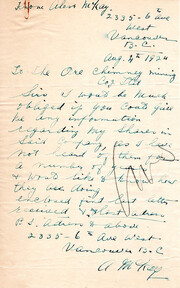 From Alex McKay
2335-6th Ave
West
Vancouver
B.C.
Aug 4th 1924
To the Ore Chimney mining
Coy Ltd
Sirs I would be much
obliged if you could give
me any information
regarding my shares in
said Company, as I have
not heard of them for
a number of years
& would like to know how
they are doing
enclosed find last
&
P.S. Address as above
2335-6th Ave West
Vancouver B.C.
A McKay